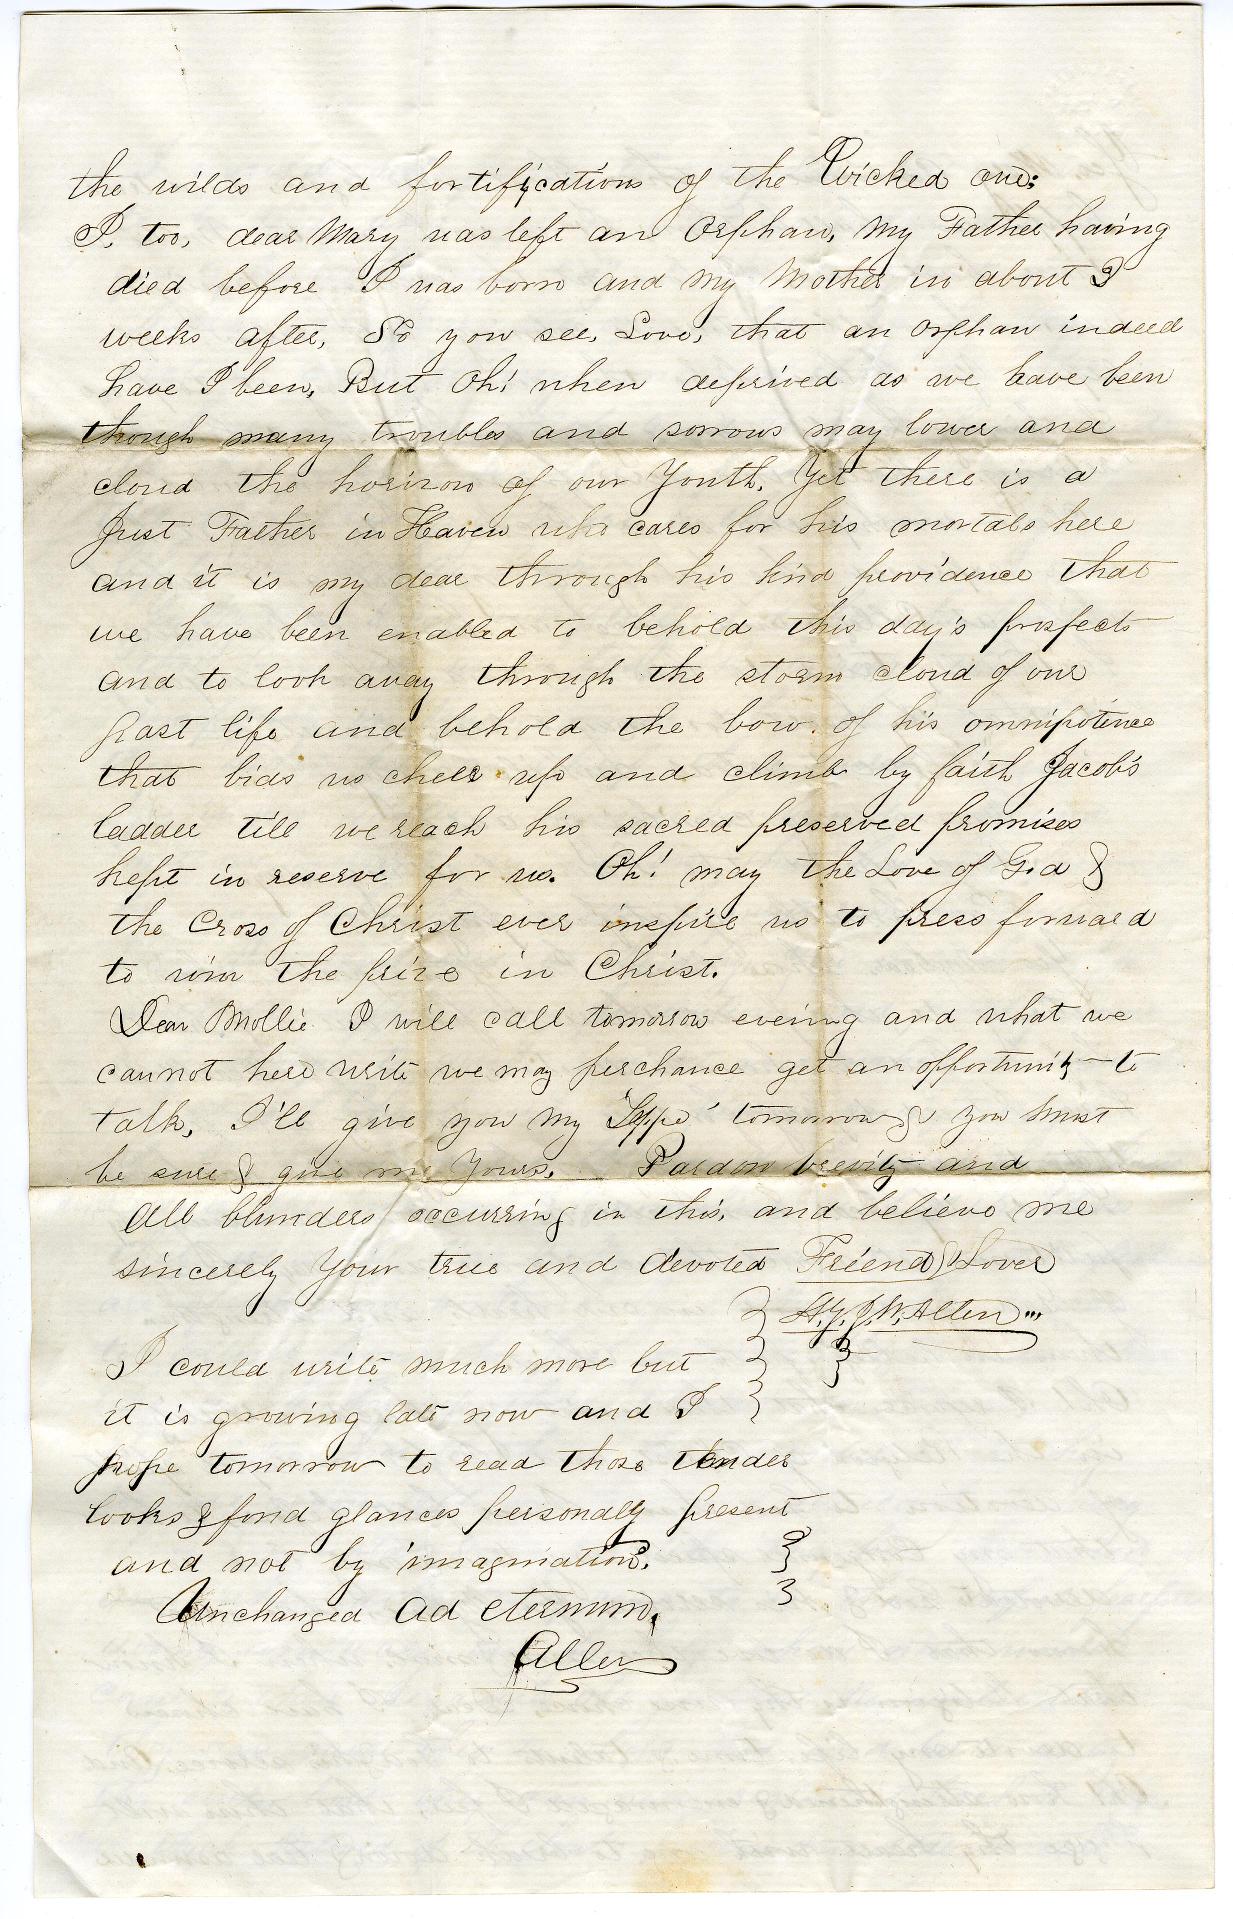 the wilds and fortifications of the Wicked one;
I, too, dear Mary was left an Orphan, My Father having
died before I was born and my Mother in about 3
weeks after, So you see, Love, that an orphan indeed
have I been, But Oh! when deprived as we have been
though many troubles and sorrows may lower and
cloud the horizon of our Youth. Yet there is a
Just Father in Haven who cares for his mortals here
and it is my dear through his kind providence that
we have been enabled to behold this day's prospects
and to look away through the storm cloud of our
past life and behold the bow of his omnipotence
that bids us cheer up and climb by faith Jacob's
ladder till we reach his sacred preserved promises
kept in reserve for us. Oh! may the Love of God &
the Cross of Christ ever inspire us to press forward
to win the prize in Christ.
Dear Mollie I will call tomorrow evening and what we
cannot here write we may perchance get an opportunity to
talk, I'll give you my 'Type' tomorrow & you must
be sure & give me Yours. Pardon brevity and
All blunders occurring in this, and believe me
sincerely Your true and devoted Friend & Lover
J. W. Allen
I could write much more but
it is growing late now and I
hope tomorrow to read those tender
looks & fond glances personally present
and not by imagination.
Unchanged Ad eternum,
Allen